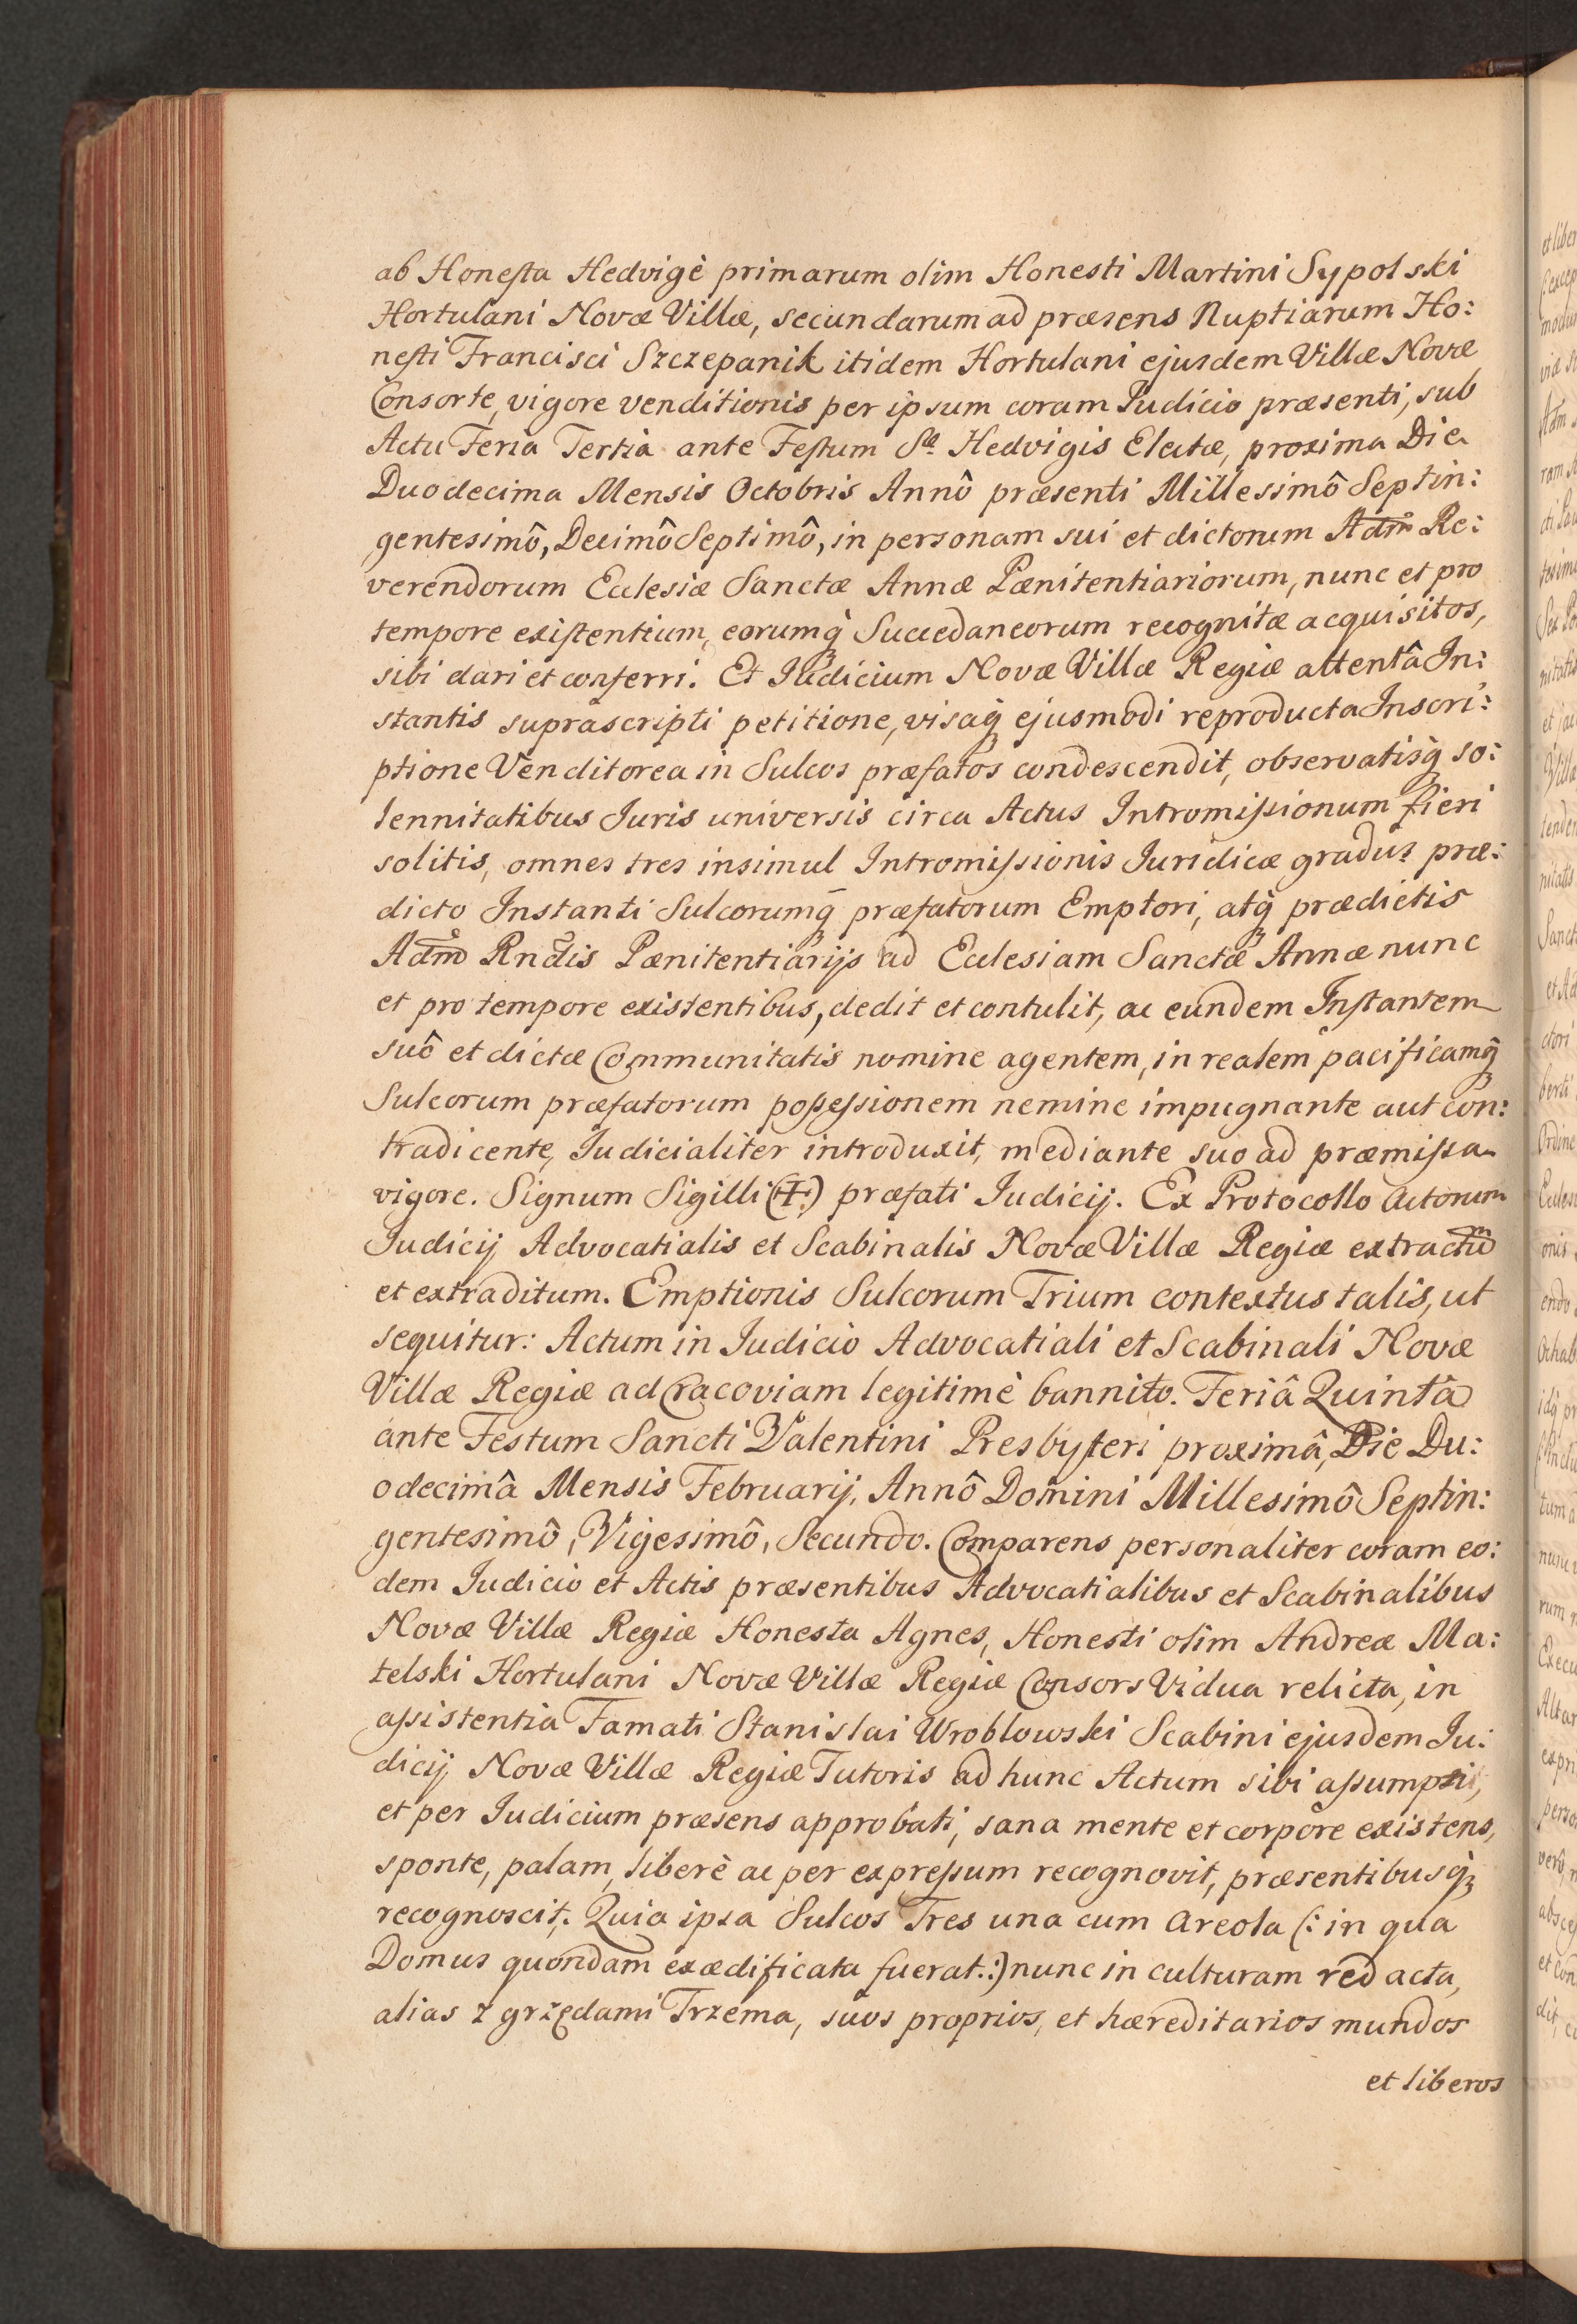 ab Honesta Hedvigè primarum olim Honesti Martini Sypolski
Hortulani Novæ Villæ, secundarum ad præsens Nuptiarum Ho:
nesti Francisci Szczepanik itidem Hortulani ejusdem Villæ Novæ
Consorte, vigore venditionis per ipsum coram Judicio præsenti, sub
Actu Feria Tertia ante Festum Sæ Hedvigis Electæ, proxima Die
Duodecima Mensis Octobris Annô præsenti Millesimô Septin:
gentesimô, Decimô Septimô, in personam sui et dictorum Adm Re:
verendorum Ecclesiæ Sanctæ Annæ Pænitentiariorum, nunc et pro
tempore existentium, eorumq́ Succedaneorum recognitæ acquisitos,
sibi dari et conferri. Et Judicium Novæ Villæ Regiæ attentâ In:
stantis suprascripti petitione, visaq́ ejusmodi reproducta Inscri:
ptione Venditorea in Sulcos præfatos condescendit, observatisq́ so:
lennitatibus Juris universis circa Actus Intromissionum fieri
solitis, omnes tres insimul Intromissionis Juridicæ gradus præ:
dicto Instanti Sulcorumq́ præfatorum Emptori, atq́ prædictis
Adm Rndis Pænitentiarijs ad Ecclesiam Sanctæ Annæ nunc
et pro tempore existentibus, dedit et contulit, ac eundem Instantem
suô et dictæ Communitatis nomine agentem, in realem pacificamq́
Sulcorum præfatorum possessionem nemine impugnante aut con:
tradicente, Judicialiter introduxit, mediante suo ad præmissa
vigore. Signum Sigilli (✝.) præfati Judicij. Ex Protocollo Actorum
Judicij Advocatialis et Scabinalis Novæ Villæ Regiæ extractū
et extraditum. Emptionis Sulcorum Trium contextus talis, ut
sequitur: Actum in Judicio Advocatiali et Scabinali Novæ
Villæ Regiæ ad Cracoviam legitimè bannito. Feriâ Quintâ
ante Festum Sancti Valentini Presbyteri proximâ, Die Du:
odecimâ Mensis Februarij, Annô Domini Millesimô Septin:
gentesimô, Vigesimô, Secundo. Comparens personaliter coram eo:
dem Judicio et Actis præsentibus Advocatialibus et Scabinalibus
Novæ Villæ Regiæ Honesta Agnes, Honesti olim Andreæ Ma:
telski Hortulani Novæ Villæ Regiæ Consors Vidua relicta, in
assistentia Famati Stanislai Wroblowski Scabini ejusdem Ju:
dicij Novæ Villæ Regiæ Tutoris ad hunc Actum sibi assumpti,
et per Judicium præsens approbati, sana mente et corpore existens,
sponte, palam, liberè ac per expressum recognovit, præsentibusq́
recognoscit. Quia ipsa Sulcos Tres una cum Areola (: in qua
Domus quondam exædificata fuerat.:) nunc in culturam redacta,
alias z grzędami Trzema, suos proprios, et hæreditarios mundos
et liberos